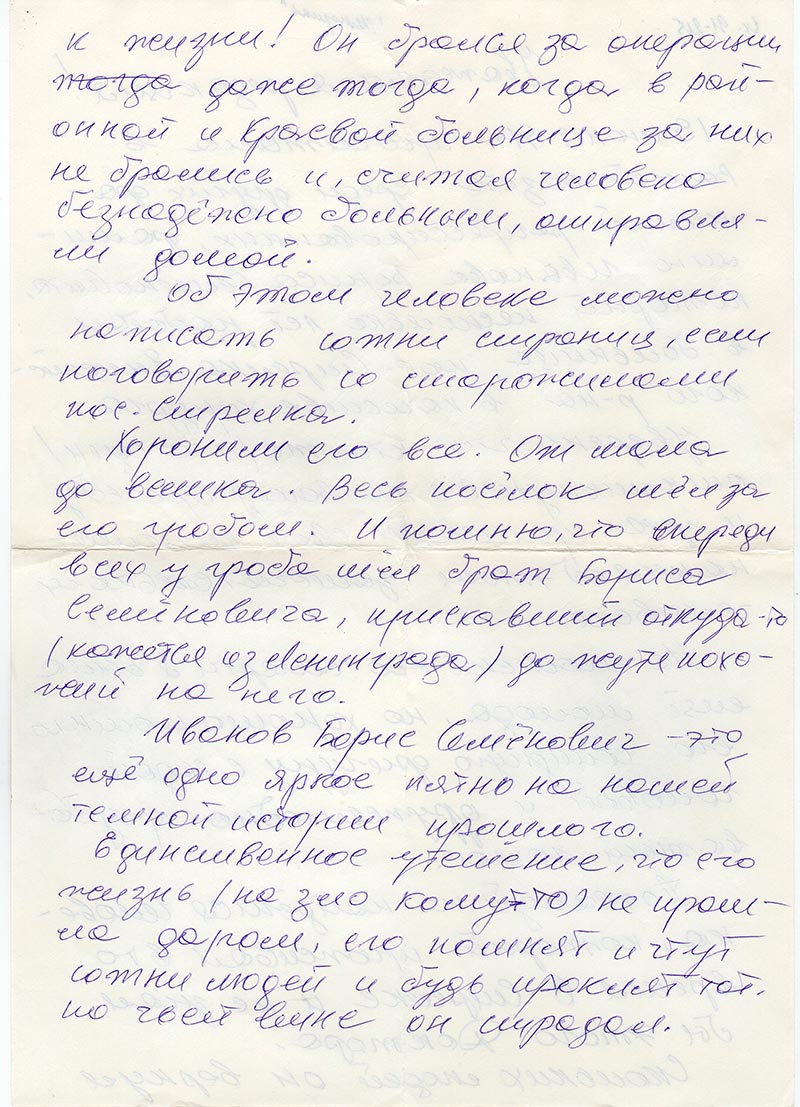 к жизни! Он брался за операции
тогда даже тогда, когда в рай-
онной и Краевой больнице за них
не брались и, считая человека
безнадёжно больным, отправля-
ли домой.
Об этом человеке можно
написать сотни страниц, если
поговорить со старожилами
пос. Стрелка.
Хоронили его все. От мала
до велика. Весь посёлок шёл за
его гробом. И помню, что впереди
всех у гроба шёл брат Бориса
Семёновича, приехавший откуда-то
(кажется из Ленинграда) до жути похо-
жий на него.
Иванов Борис Семёнович - это
ещё одно яркое пятно на нашей
темной истории прошлого.
Единственное утешение, что его
жизнь (на зло кому-то) не прош-
ла даром, его помнят и чтут
сотни людей и будь проклят тот,
по чьей вине он страдал.